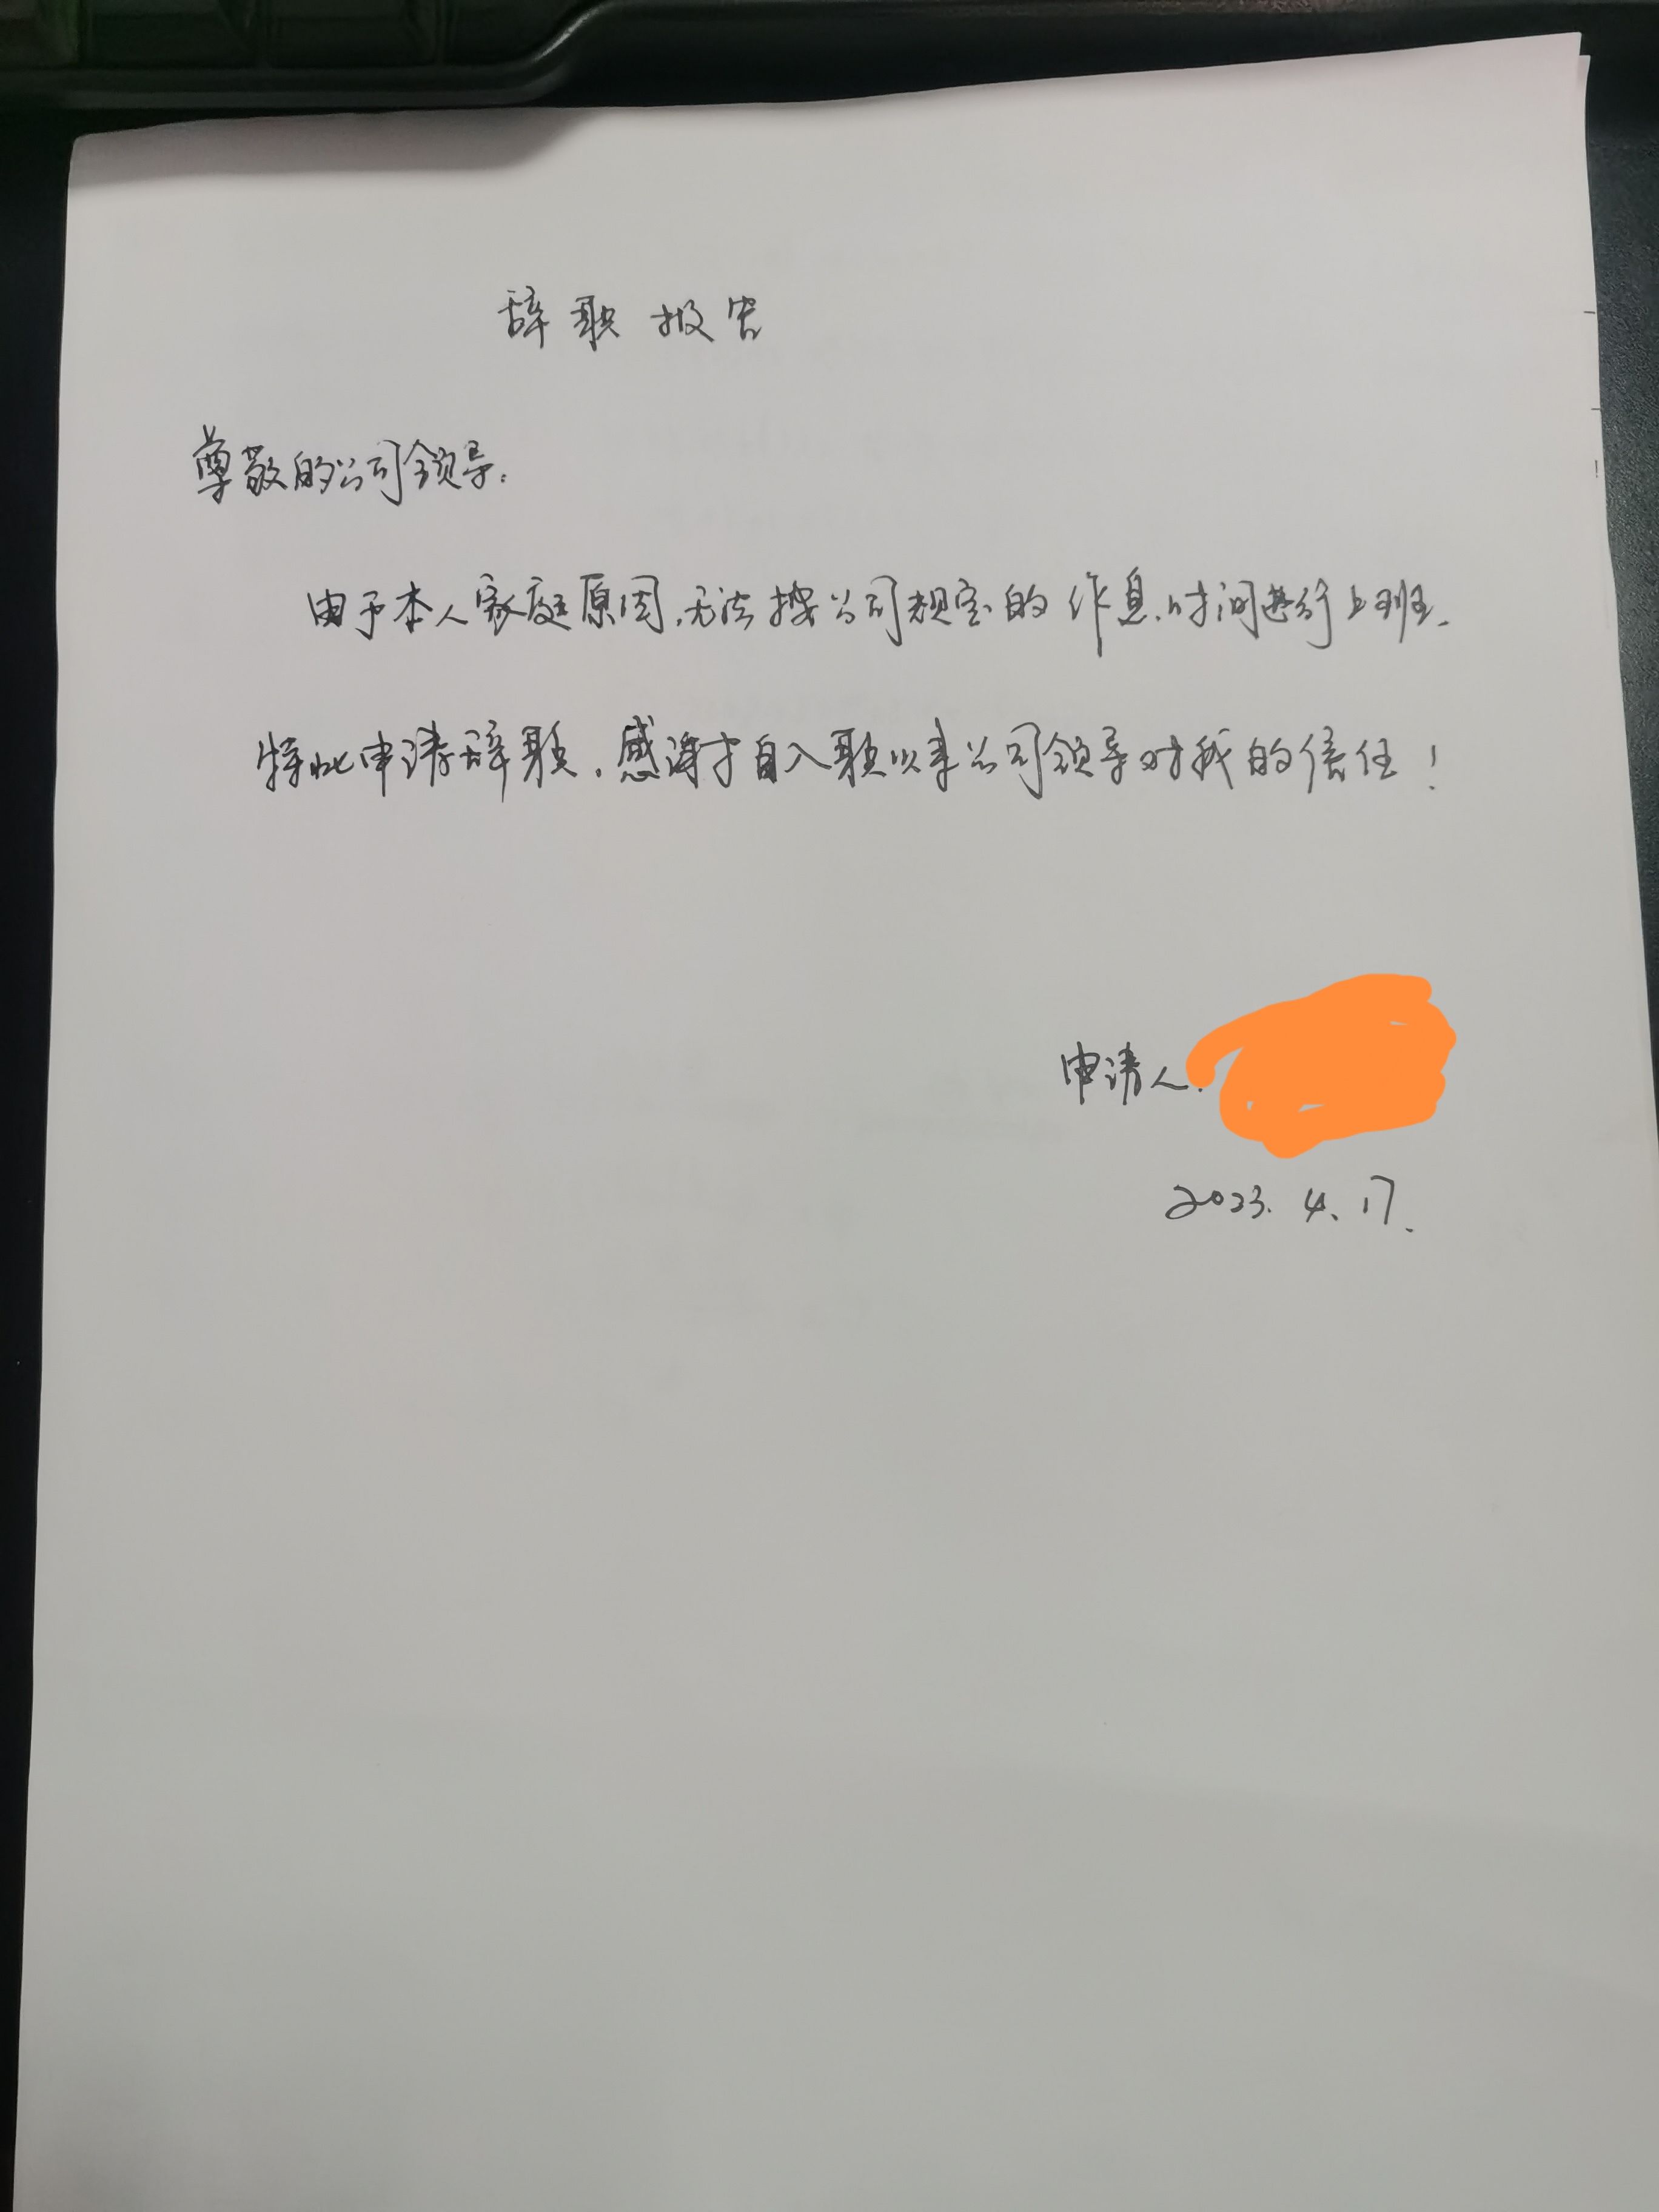 辞职报告
尊敬的公司领导:
由于本人家庭原因,无法按公司规定的作息时间进行上班.
特此申请辞职.感谢自入职以来公司领导对我的信任!
申请人:
2023.4.17.